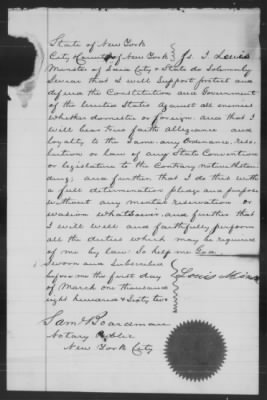 State of New York
City & County of New York } ss. I, Louis
of said City & State do Solemnly
Swear that I will Support protect and
defend the Constitution and Government
of the United States against all enemies
whether domestic or foreign, and that I
will bear true faith allegiance and
loyalty to the Same, any Ordinance, reso-
lution or law of any State Convention
or legislature to the Contrary notwithstan-
ding; and further that I do this with
a full determination pledge and purpose
without any mental reservation or
evasion whatsoever, and further that
I will well and faithfully perform
all the duties which may be required
of me by law. So help me God.
Sworn and Subscribed
before me this first day
of March one thousand
eight hundred & Sixty two
Louis
Saml Boardman
Notary Public
New York City